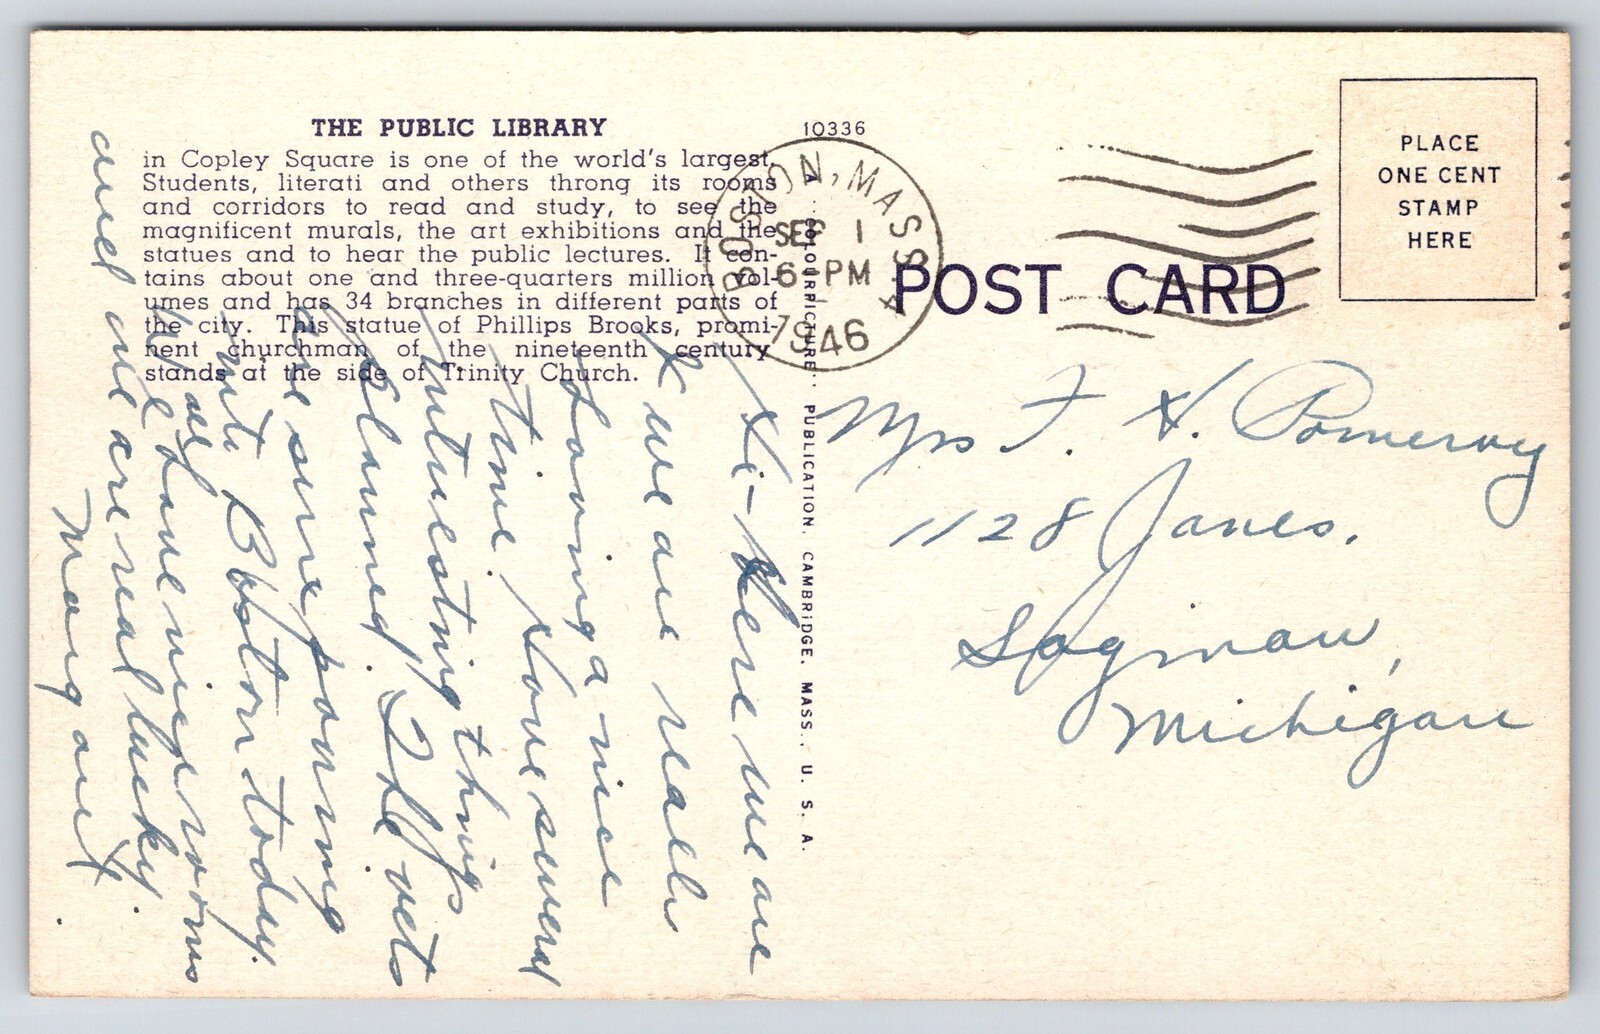 THE PUBLIC LIBRARY
in Copley Square is one of the world's largest.
Students, literati and others throng its rooms
and corridors to read and study, to see the
magnificent murals, the art exhibitions and the
statues and to hear the public lectures. It con-
tains about one and three-quarters million vol-
umes and has 34 branches in different parts of
the city. This statue of Phillips Brooks, promi-
nent churchman of the nineteenth century
stands at the side of Trinity Church.
10336
BOSTON, MASS. 4
SEP 1
6-PM
1946
POST CARD
PLACE
ONE CENT
STAMP
HERE
A "COLOURPICTURE" PUBLICATION, CAMBRIDGE, MASS., U. S. A.
Mrs F. H. Pomeroy
1128 Janes.
Saginaw,
Michigan
Hi - Here we are
& we are really
having a nice
time. Have several
interesting things
planned. Old vets
are sure pouring
into Boston today.
We all have nice rooms
and we are real lucky.